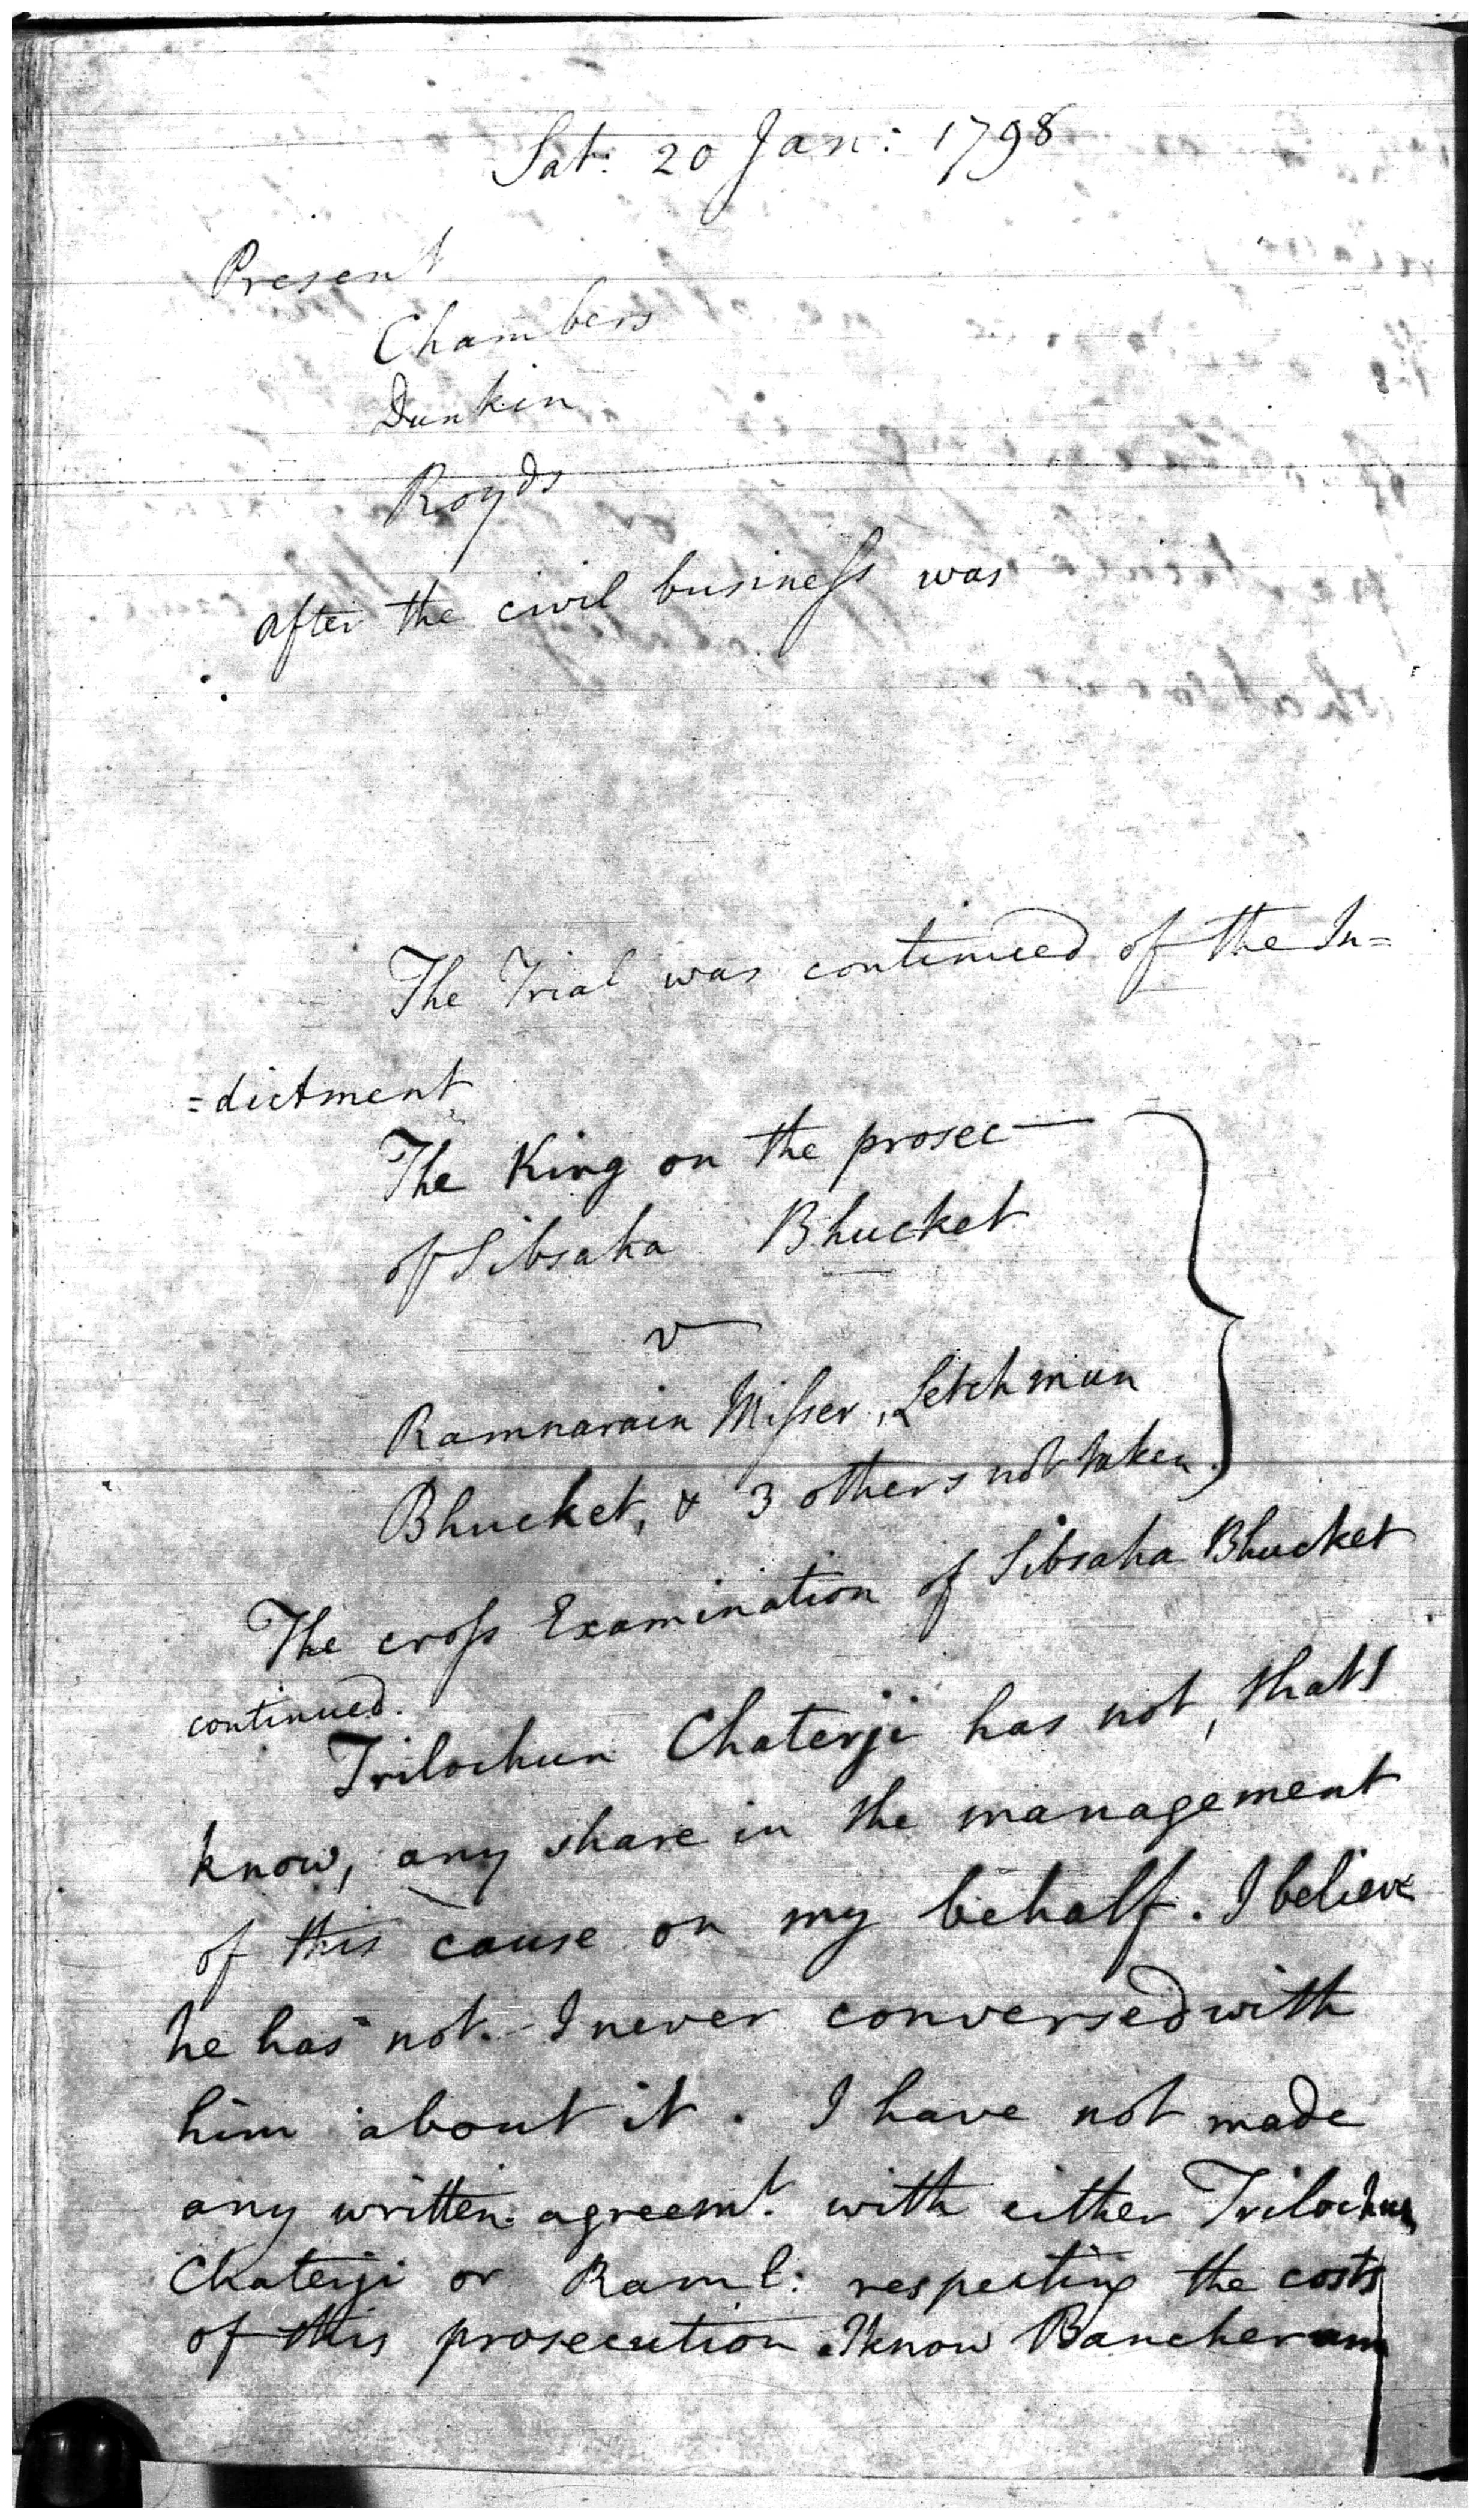 Sat: 20 Jan: 1798
Present
Chambers
Dunkin
Royds
after the civil business was
The Trial was continued of the In=
=dictment
The King on the prosec—
of Sibsaha Bhucket
v
Ramnarain Misser, Letchmun
Bhucket, & 3 others not taken.
The cross Examination of Sibsaha Bhucket
continued.
Trilochun Chaterji has not, that I
know, any share in the management
of this cause on my behalf. I believe
he has not. I never conversed with
him about it. I have not made
any written agreemt. with either Trilochun
Chaterji or Raml: respecting the costs
of this prosecution. I know Bancheram